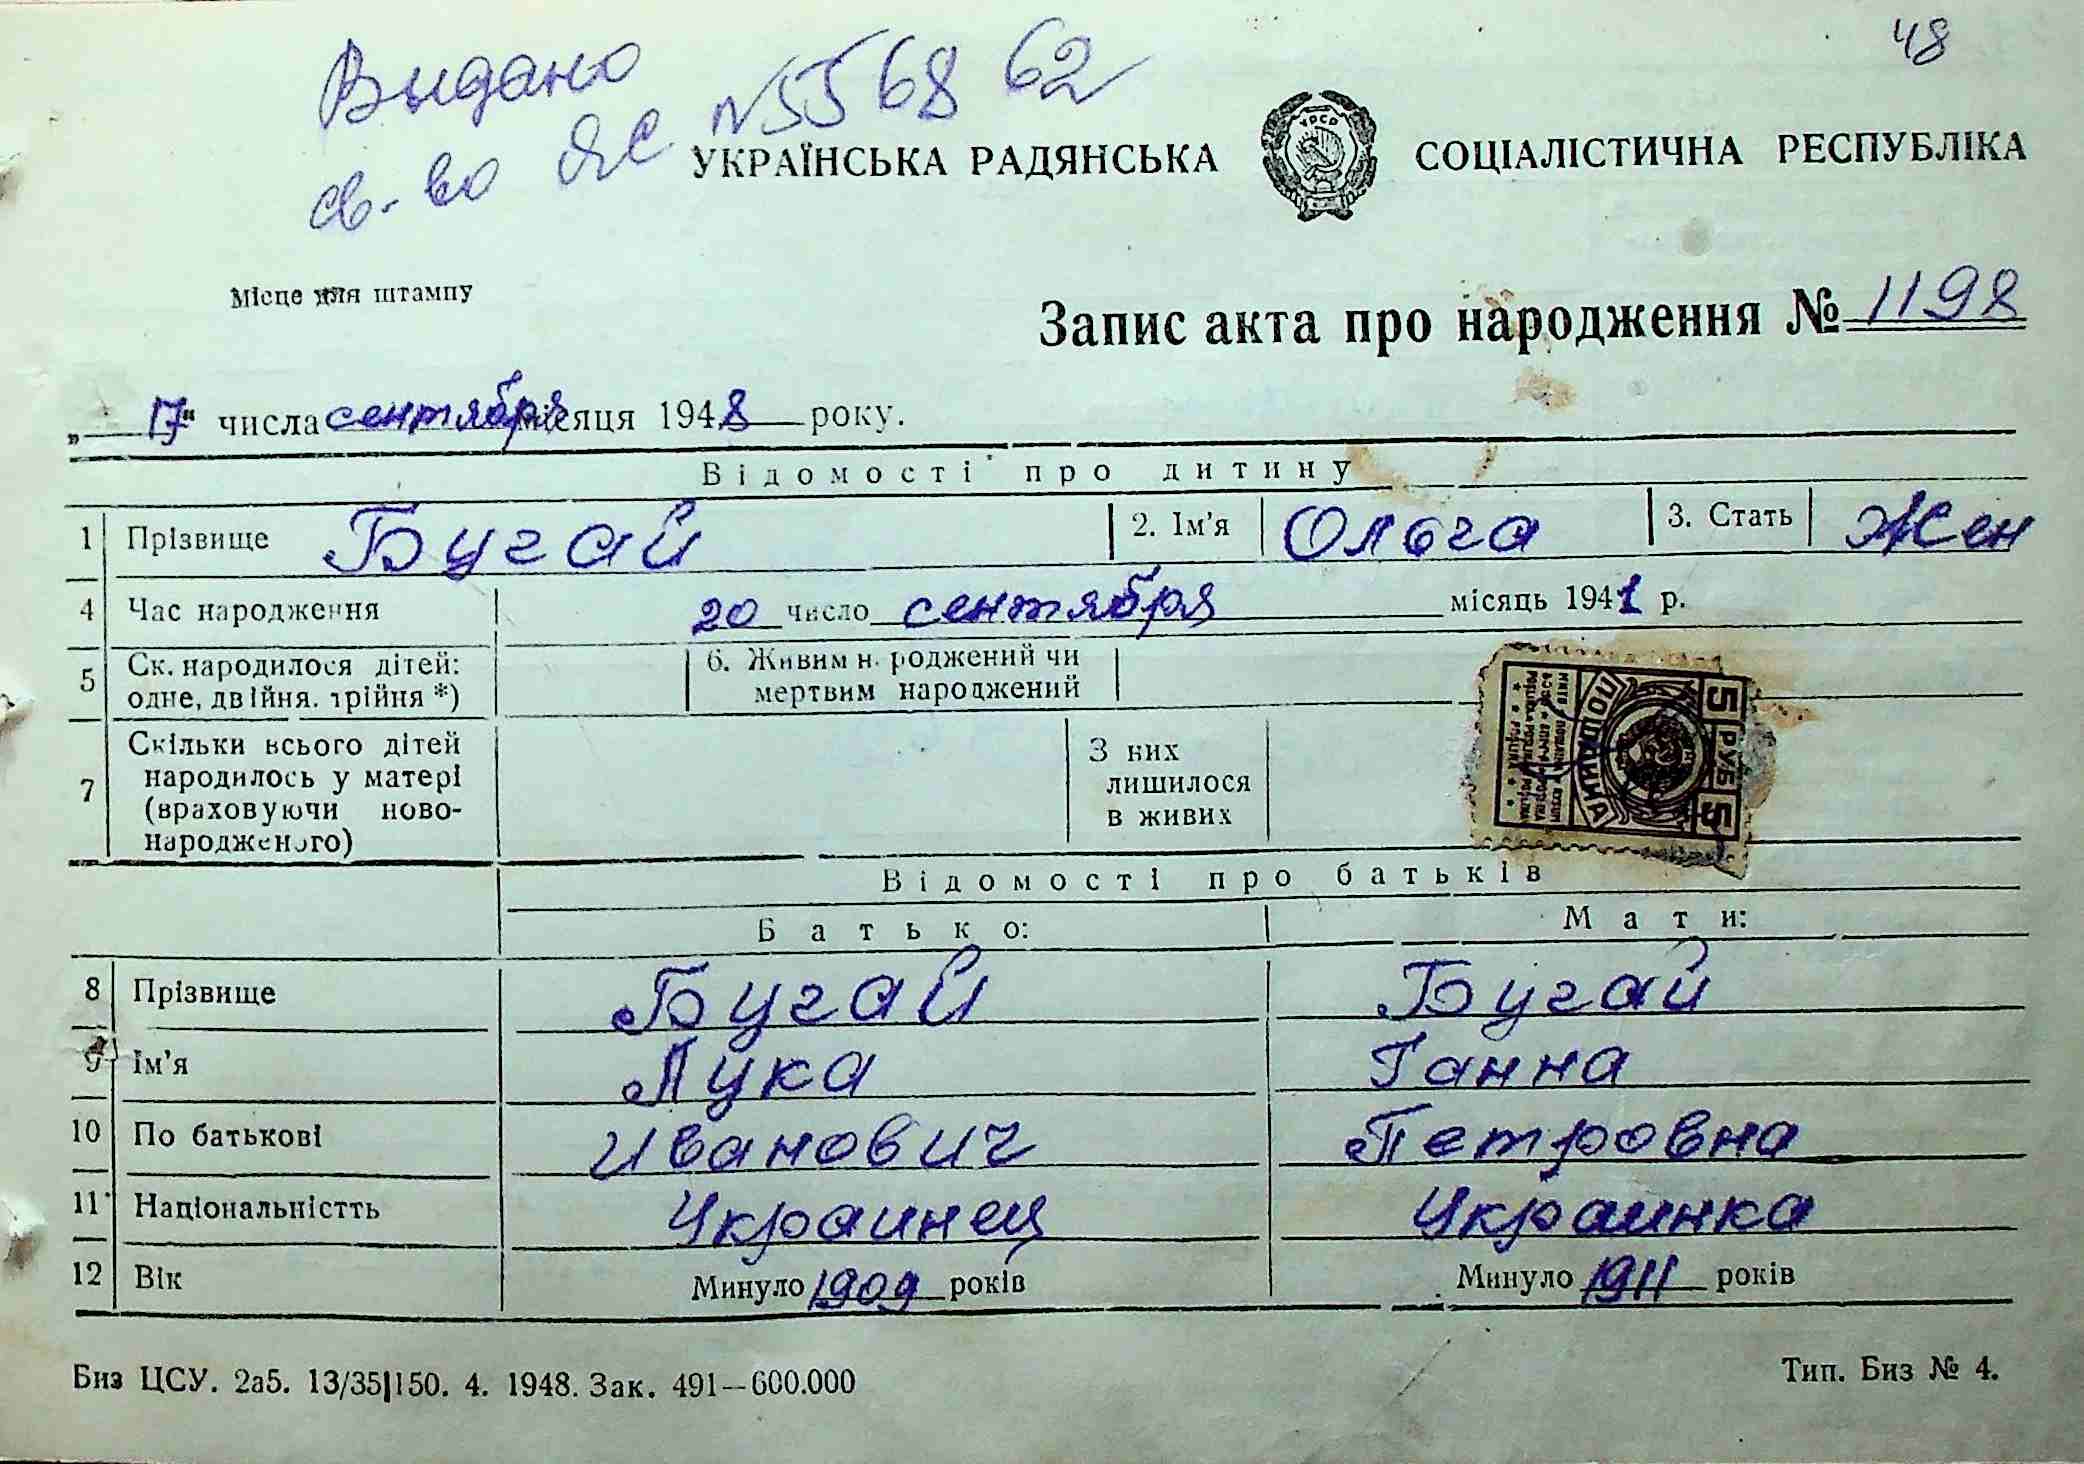 48
Видано
св-во ЯС №556862
УКРАЇНСЬКА РАДЯНСЬКА СОЦІАЛІСТИЧНА РЕСПУБЛІКА
УРСР
Місце для штампу
Запис акта про народження № 1198
„ 17 " числа сентября місяця 1948 року.
Відомості про дитину
1 Прізвище Бугай 2. Ім'я Ольга 3. Стать Жен
4 Час народження 20 число сентября місяць 1941 р.
5 Ск. народилося дітей: одне, двійня, трійня *) 6. Живим н. роджений чи мертвим народжений
7 Скільки всього дітей народилось у матері (враховуючи новонародженого) З них лишилося в живих
5 РУБ 5
ПОШЛИНА
Відомості про батьків
Батько: Мати:
8 Прізвище Бугай Бугай
9 Ім'я Лука Ганна
10 По батькові Иванович Петровна
11 Національністть Украинец Украинка
12 Вік Минуло 1909 років Минуло 1911 років
Биз ЦСУ. 2а5. 13/35|150. 4. 1948. Зак. 491—600.000 Тип. Биз № 4.